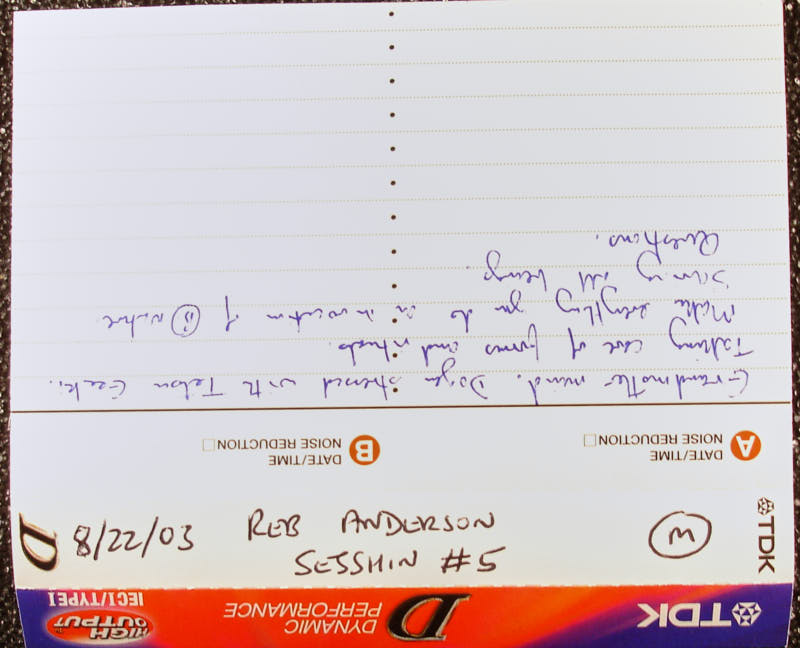 TDK D DYNAMIC PERFORMANCE HIGH OUTPUT IECI/TYPE I
TDK
M
8/22/03 REB ANDERSON
SESSHIN #5
D
A DATE/TIME
NOISE REDUCTION
B DATE/TIME
NOISE REDUCTION
Grandmother mind. Dogen stressed with
Taking care of forms and rituals.
Make everything you do an invocation of nature.
Saving all beings.
Questions.